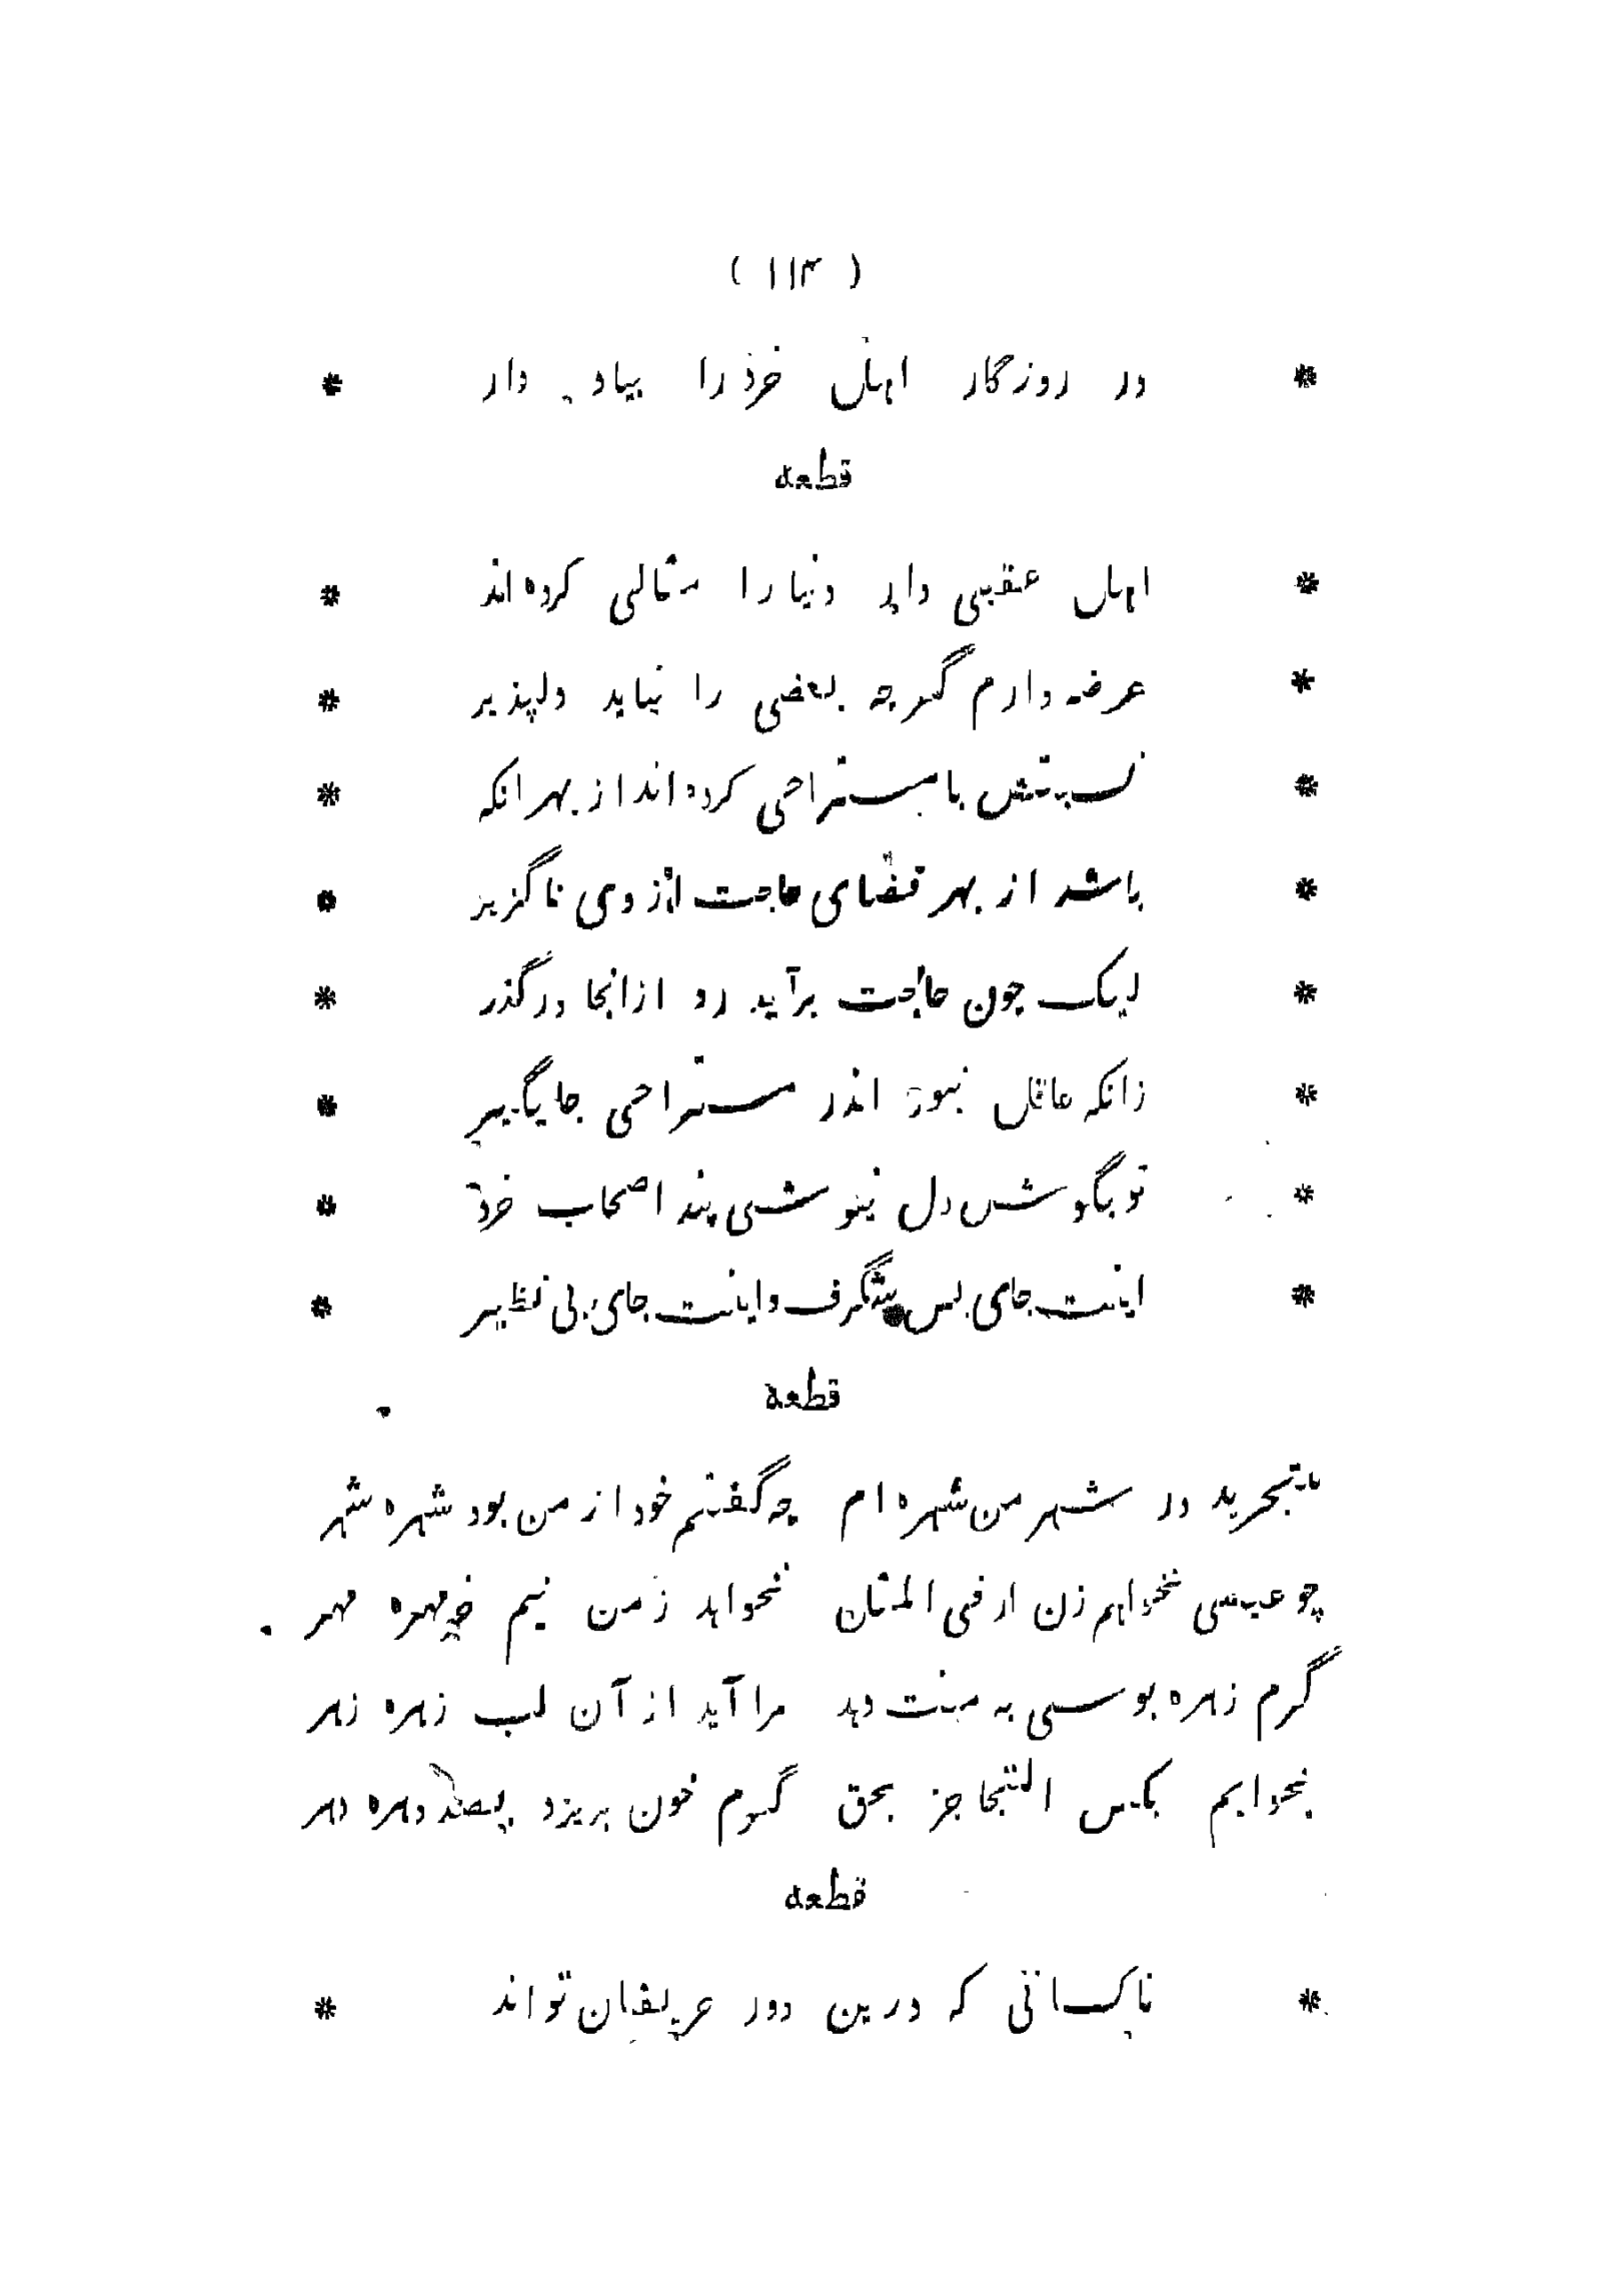 ( ۱۱۴ )
* در روزگار اهل خرد را بیاد دار *
قطعه
* اهل عقبی دایر دنیا را مثالی کرده اند *
* عرضه دارم گرچه بعضی را نیاید دلپذیر *
* نسبتش با مستراحی کرده اند از بهر انکه *
* باشد از بهر قضای حاجت از وی ناگزیر *
* لیک چون حاجت برآید رو ازانجا درگذر *
* زانکه عاقل نبود اندر مستراحی جایگیر *
* تو بگوش دل نیوشی پند اصحاب خرد *
* اینت جای بس شگرف و اینت جای بی نظیر *
قطعه
بتجرید در شهر من شهره ام چه گفتم خود از من بود شهره شهر
چو عیسی نخواهم زن ار فی المثل نخواهد ز من نیم خرمهره مهر
گرم زهره بوسی به منت دهد مرا آید از آن لب زهره زهر
نخواهم بکس التجا جز بحق گرم خون بریزد بصد دهره دهر
قطعه
* ناکسانی که درین دور حریفان تواند *